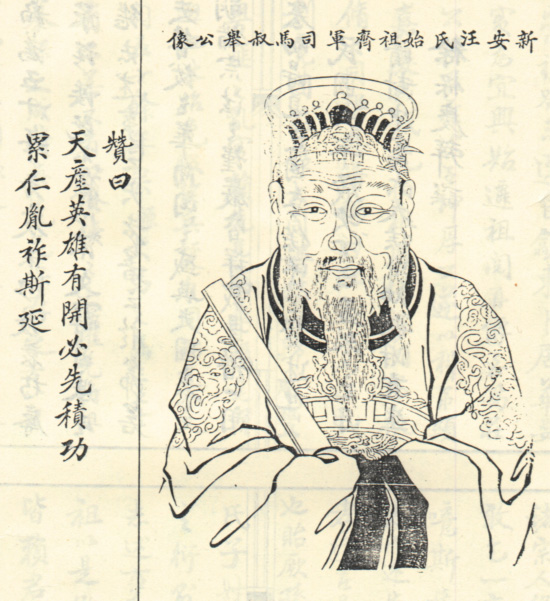 新安汪氏始祖齊軍司馬叔舉公像
贊曰
天產英雄有開必先積功
累仁胤祚斯延